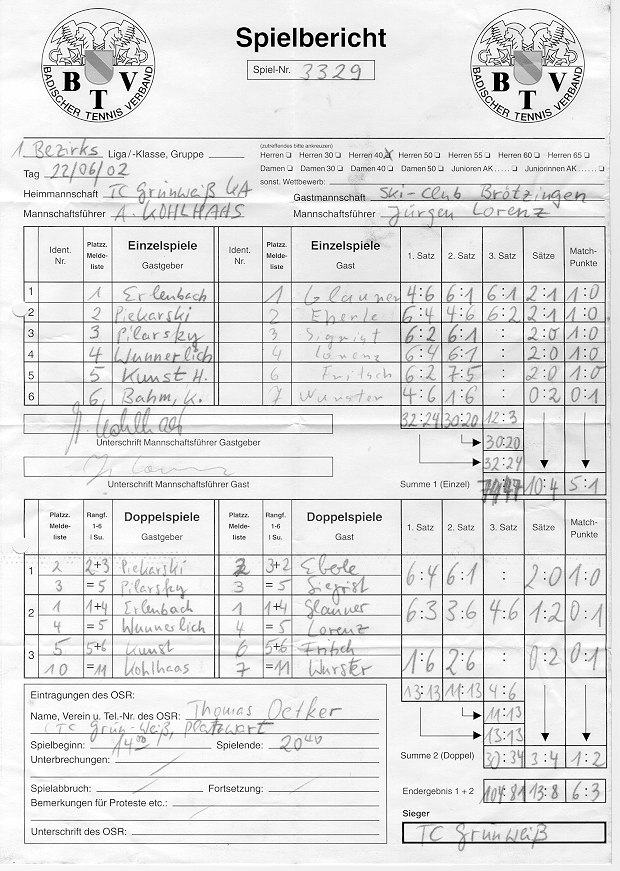 Spielbericht
Spiel-Nr. 3329
BTV
BADISCHER TENNIS VERBAND
BTV
BADISCHER TENNIS VERBAND
1 Bezirks Liga/-Klasse, Gruppe
(zutreffendes bitte ankreuzen)
Herren Herren 30 Herren 40 x Herren 50 Herren 55 Herren 60 Herren 65
Tag 22/06/02
Damen Damen 30 Damen 40 Damen 50 Junioren AK ..... Juniorinnen AK .....
sonst. Wettbewerb:
Heimmannschaft TC Grünweiß KA Gastmannschaft Ski-Club Brötzingen
Mannschaftsführer A. KOHLHAAS Mannschaftsführer Jürgen Lorenz
Ident. Nr. Platzz. Meldeliste Einzelspiele Gastgeber Ident. Nr. Platzz. Meldeliste Einzelspiele Gast 1. Satz 2. Satz 3. Satz Sätze Match-Punkte
1 1 Erlenbach 1 Glauner 4:6 6:1 6:1 2:1 1:0
2 2 Piekarski 2 Eberle 6:4 4:6 6:2 2:1 1:0
3 3 Pilarsky 3 Sigrist 6:2 6:1 : 2:0 1:0
4 4 Wunnerlich 4 Lorenz 6:4 6:1 : 2:0 1:0
5 5 Kunst H. 6 Fritsch 6:2 7:5 : 2:0 1:0
6 6 Bahm, K. 7 Wurster 4:6 1:6 : 0:2 0:1
32:24 30:20 12:3
Unterschrift Mannschaftsführer Gastgeber
30:20
32:24
Unterschrift Mannschaftsführer Gast
Summe 1 (Einzel) 10:4 5:1
Platzz. Meldeliste Rangf. 1-6 I Su. Doppelspiele Gastgeber Platzz. Meldeliste Rangf. 1-6 I Su. Doppelspiele Gast 1. Satz 2. Satz 3. Satz Sätze Match-Punkte
1 2 2+3 Piekarski 2 3+2 Eberle 6:4 6:1 : 2:0 1:0
3 =5 Pilarsky 3 =5 Siegrist
2 1 1+4 Erlenbach 1 1+4 Glauner 6:3 3:6 4:6 1:2 0:1
4 =5 Wunnerlich 4 =5 Lorenz
3 5 5+6 Kunst 6 5+6 Fritsch 1:6 2:6 : 0:2 0:1
10 =11 Kohlhaas 7 =11 Wurster
13:13 11:13 4:6
11:13
13:13
Summe 2 (Doppel) 30:34 3:4 1:2
Eintragungen des OSR:
Name, Verein u. Tel.-Nr. des OSR: Thomas Oetker
(TC Grün-Weiß, Platzwart
Spielbeginn: 14 00 Spielende: 20 40
Unterbrechungen:
Spielabbruch: Fortsetzung:
Bemerkungen für Proteste etc.:
Unterschrift des OSR:
Endergebnis 1 + 2 104:81 13:8 6:3
Sieger
TC Grünweiß